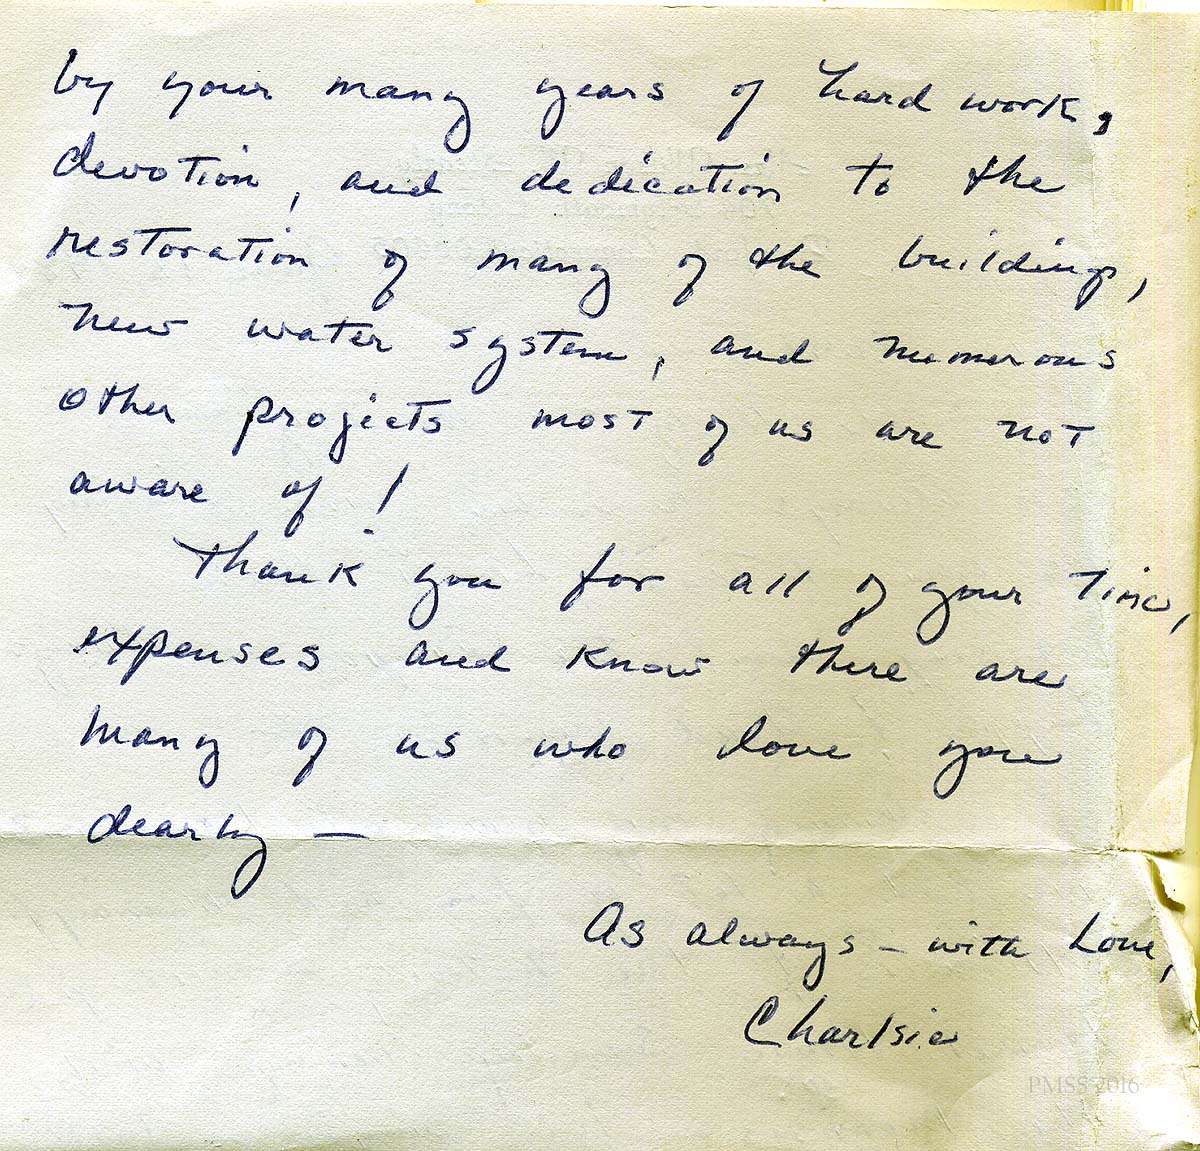 by your many years of hard work,
devotion, and dedication to the
restoration of many of the buildings,
new water system, and numerous
other projects most of us are not
aware of!
Thank you for all of your time,
expenses and know there are
many of us who love you
dearly —
As always – with Love,
Charlsie
PMSS 2016